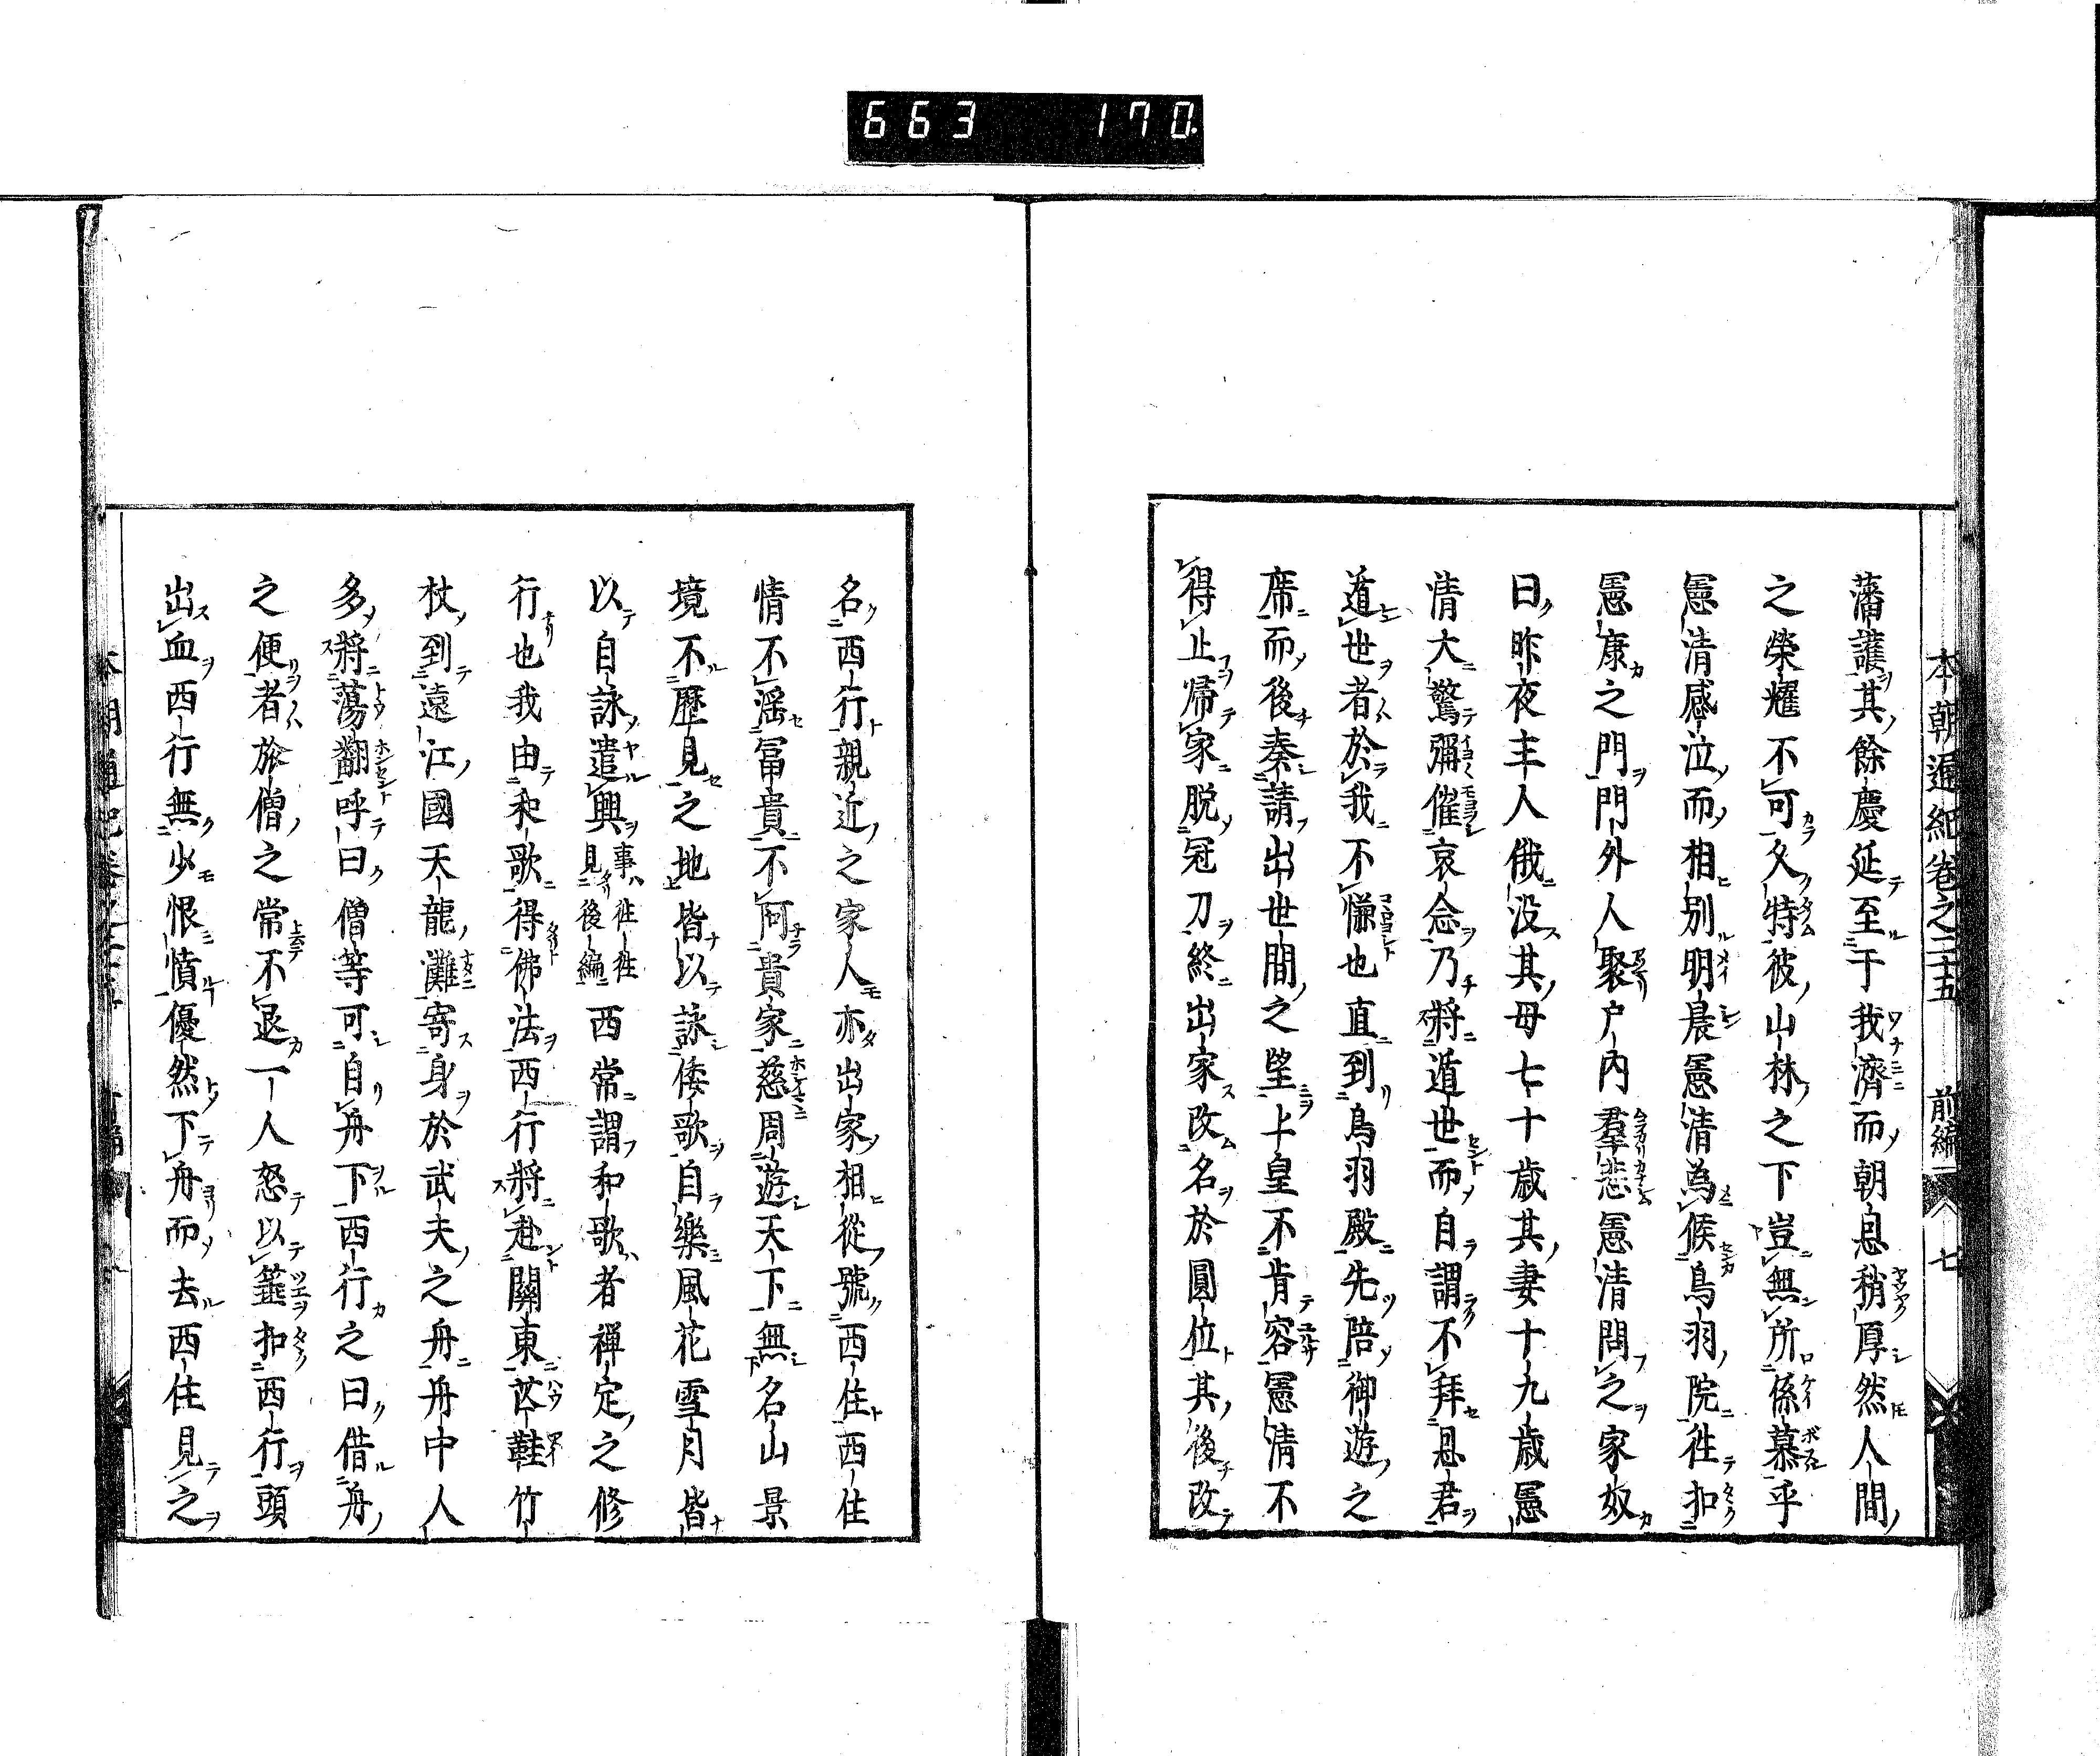 663 170.
本朝通紀卷之二十五 前編 七
藩護其餘慶延至于我濟而朝恩稍厚然人間
之榮耀不可久特彼山林之下豈無所係慕乎
憲清感泣而相別明晨憲清為候鳥羽院往扣
憲康之門門外人聚戶內羣悲憲清問之家奴
曰昨夜主人俄没其母七十歲其妻十九歲憲
清大驚彌催哀念乃將遁世而自謂不拜恩君
遁世者於我不慊也直到鳥羽殿先陪御遊之
席而後奏請出世間之望上皇不肯容憲清不
得止帰家脱冠刀終出家改名於圓位其後改
名西行親近之家人亦出家相從號西住西住
情不滛冨貴不阿貴家慈周遊天下無名山景
境不歷見之地皆以詠倭歌自樂風花雪月皆
以自詠遣興事往往見後編西常謂和歌者禅定之修
行也我由和歌得佛法西行將赴關東芒鞋竹
杖到遠江國天龍灘寄身於武夫之舟舟中人
多將蕩翻呼曰僧等可自舟下西行之曰借舟
之便者於僧之常不退一人怒以箠扣西行頭
出血西行無少恨憤優然下舟而去西住見之